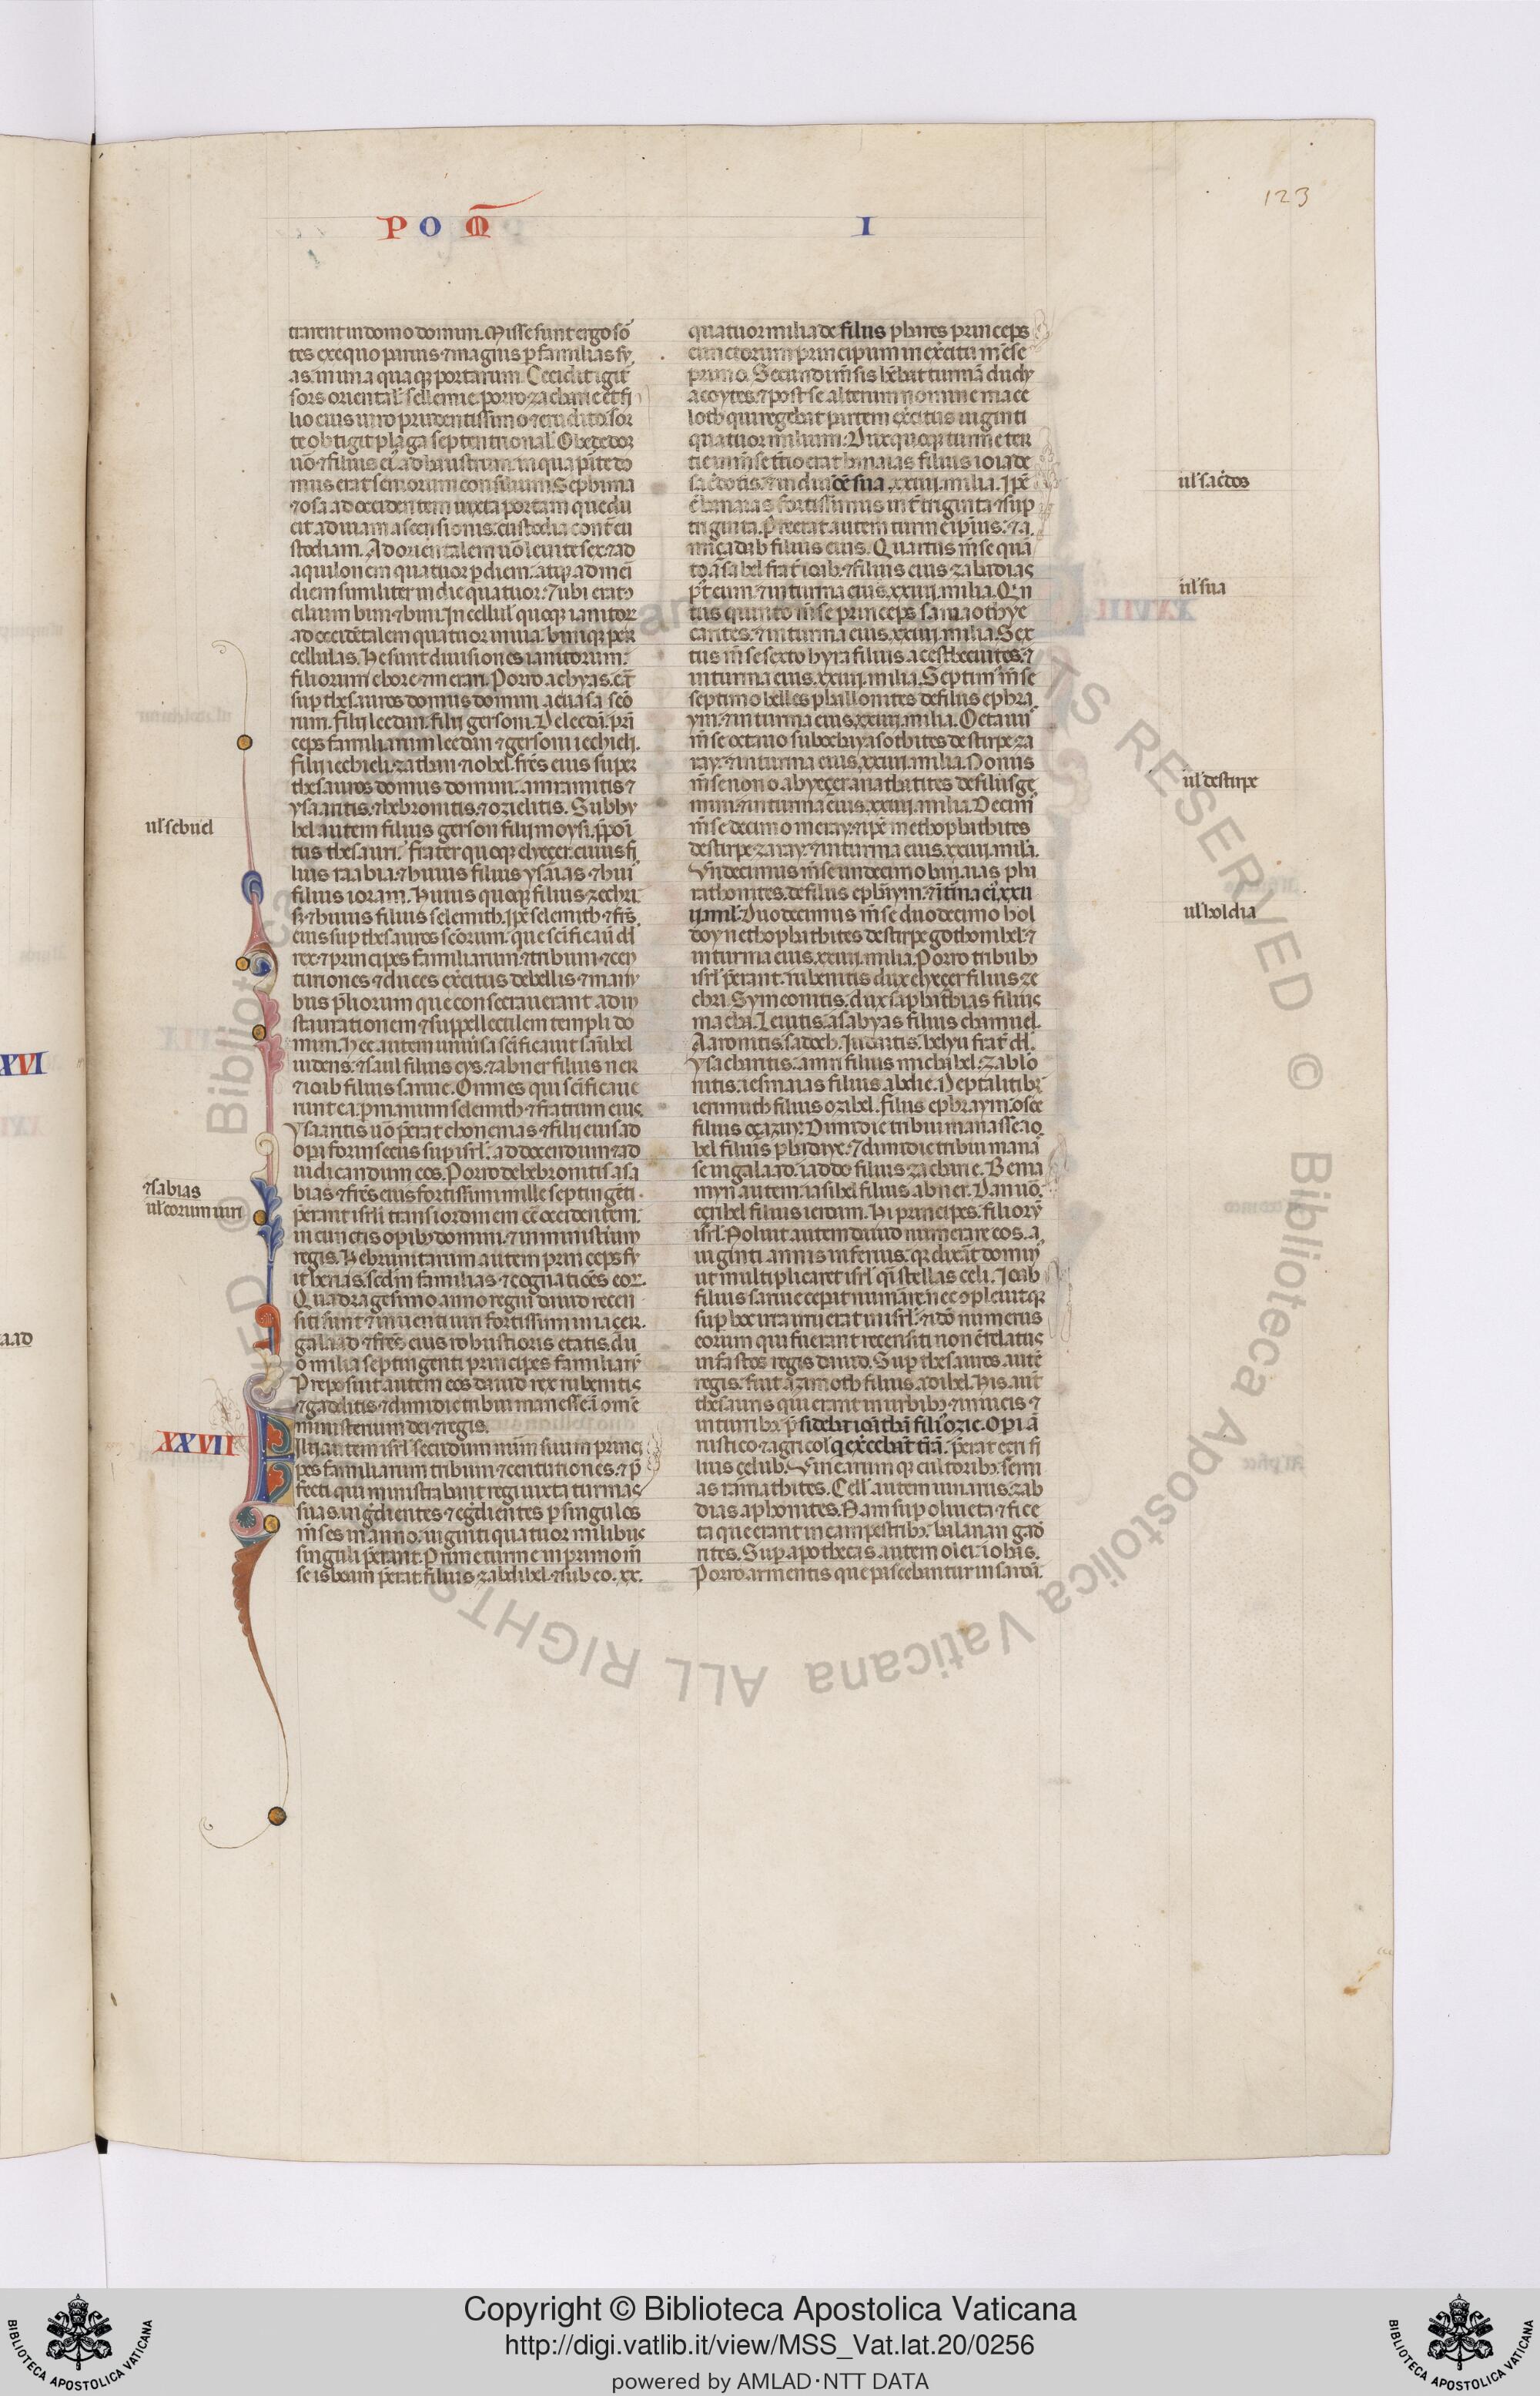 123
POM̄ I
trarent in domo domini. Misse sunt ergo so
tes ex equo paruis ⁊ magnis ꝑ familias sy
as. in una quaqꝫ portarum. Cecidit igit̃
sors oriental̃ sellemie. porro zacharie ei̾ fi
lio eius uiro prudentissimo ⁊ erudito. sor
te obtigit plaga septentrional̃. Obededom
uō ⁊ filiis ei̾ ad haustrum. in qua pte do
mus erat seniorum consilium. Sephima
⁊ osa ad occidentem iuxta portam que du
cit ad uiam ascensionis. custodia cont̃ cu
stodiam. Ad orientalem uō leuite sex. ⁊ ad
aquilonem quatuor ꝑ diem. atqꝫ ad meri
diem similiter in die quatuor. ⁊ ubi erat ↄ
cilium bini ⁊ bini. In cellul̾ quoqꝫ ianitorꝫ
ad occidētalem quatuor in uia. biniqꝫ per
cellulas. He sunt diuisiones ianitorum.
filiorum chore ⁊ merari. Porro achyas. er̃
sup thesauros domus domini ac uasa scō
rum. filij leedan. filij gersoni. De leedā. prī
ceps familiarum leedan ⁊ gersoni iechieli.
filij iechieli. zathan ⁊ iohel. frēs eius super
thesauros domus domini. amramitis ⁊
ysaaritis. ⁊ hebronitis. ⁊ ozielitis. Subhy
hel autem filius gerson filij moysi. p̄poi
tus thesauri. frater quoqꝫ elyeçer. cuius fi
lius raabia. ⁊ huius filius ysaias. ⁊ hui̾
filius ioram. Huius quoqꝫ filius zechri.
s; ⁊ huius filius selemith. Ipē selemith ⁊ frēs
eius sup thesauros scōrum. que scīficauit dd̃
rex. ⁊ principes familiarum. ⁊ tribuni. ⁊ cen
turiones ⁊ duces exercitus de bellis. ⁊ many
biis p̄liorum que consecrauerant ad in
staurationem ⁊ suppellectilem templi do
mini. Hec autem uniuersa scīficauit samuhel
uidens. ⁊ saul filius cys. ⁊ abner filius ner
⁊ ioab filius saruie. Omnes qui scīficaue
runt ea. ꝑ manum selemith ⁊ fratrum eius.
Ysaaritis uō p̄erat chonenias ⁊ filij eius ad
opa forinsecus sup isrł. ad docendum ⁊ ad
iudicandum eos. Porro de hebronitis asa
bias ⁊ frēs eius fortissimi mille septingēti
p̄erant isrli trans iordanem cō occidentem.
in cunctis opibꝫ domini. ⁊ in ministerium
regis. Hebronitarum autem princeps fu
it herias. scdm familias ⁊ cognatiōes eorꝫ.
Quadragesimo anno regni dauid recen
siti sunt ⁊ inuenti uiri fortissimi in iaçer.
galaad. ⁊ frēs eius robustioris etatis. du
o milia septingenti principes familiarꝫ
Preposuit autem eos dauid rex rubenitis
⁊ gadditis ⁊ dimidie tribui manasse ī ome
ministerium dei ⁊ regis.
Filij autem isrł secundum num suum princi
pes familiarum tribuni ⁊ centuriones. ⁊ p̄
fecti qui ministrabant regi iuxta turmas
suas. ingredientes ⁊ egredientes ꝑ singulos
m̃ses in anno. uiginti quatuor milibus
singuli p̄erant. Prime turme in primo m̃
se isboam p̄erat filius zabdihel. ⁊ sub eo. xx.
quatuor milia de filiis phares princeps
cunctorum principum in exercitu mēse
primo. Secundi m̃sis hēbat turmā dudy
acoytes. ⁊ post se alterum nomine mace
loth qui regebat partem exercitus uiginti
quatuor milium. Dux quoqꝫ turme ter
tie in m̃se tertio erat banaias filius ioiade
sacerdotis. ⁊ in diuisiōe sua .xxiiij. milia. Ipē
ē banaias fortissimus int̃ triginta ⁊ sup
triginta. P̄erat autem turme ipsius. ⁊ a
miçadab filius eius. Quartus m̃se quar
to asahel frat̃ ioab. ⁊ filius eius zabadias
pt̃ eum. ⁊ in turma eius .xxiiij. milia. Quī
tus quinto m̃se princeps samaoth ye
carites. ⁊ in turma eius .xxiiij. milia. Sex
tus m̃se sexto hyra filius aces thecuites. ⁊
in turma eius .xxiiij. milia. Septim̾ m̃se
septimo helles phallonites de filiis ephra
ym. ⁊ in turma eius .xxiiij. milia. Octau̾
m̃se octauo sobochay asothites de stirpe za
ray. ⁊ in turma eius .xxiiij. milia. Nonus
m̃se nono abyeçer anathotites de filiis ge
mini. ⁊ in turma eius .xxiiij. milia. Decim̾
m̃se decimo maray. ⁊ ipē nethophathites
de stirpe zaray. ⁊ in turma eius .xxiiij. milia.
Vndecimus m̃se undecimo banaias phi
rathonites. de filiis ephraym. ⁊ ī turma ei̾. xxii
ij. mil̾. Duodecimus m̃se duodecimo hol
day nethophathites de stirpe gothonihel. ⁊
in turma eius .xxiiij. milia. Porro tribubꝫ
isrł p̄erant. rubenitis dux elyeçer filius ze
chri. Symeonitis. dux saphathias filius
macha. Leuitis. asabyas filius chamuel.
Aaronitis. sadoch. Iudaitis. helyu frat̃ dd̃.
Ysacharitis. amri filius michahel. Zablo
nitis. iesmaias filius abdie. Neptalitibꝫ
ierimuth filius ozihel. filiis ephraym. osee
filius oçaziu. Dimidie tribui manasse. io
hel filius phadaye. ⁊ dimidie tribui mana
se in galaad. iaddo filius zacharie. Benia
myn autem. iasihel filius abner. Dan uō.
eçrihel filius ieroam. Hi principes. filiorꝫ
isrł. Noluit autem dauid numerare eos. a
uiginti annis inferius. qꝫ dixerat dominꝰ
ut multiplicaret isrł qi̾ stellas celi. Ioab
filius saruie cepit numerare. nec opleuitqꝫ
sup hoc ira irruerat in isrł. ⁊ idō numerus
eorum qui fuerant recensiti non ē relatus
in fastos regis dauid. Sup thesauros autē
regis. fuit azimoth filius adihel. His aut̃
thesauris qui erant in urbibꝫ ⁊ in uicis ⁊
in turribꝫ. p̄sidebat ionathan fili̾ ozie. Opi aut̃
rustico ⁊ agricolis q̇ exercebant terrā. p̄erat eçri fi
lius celub. Vinearum qꝫ cultoribꝫ. semei
as ramathites. Cell̾ autem uinariis. zab
dias aphonites. Nam sup oliueta ⁊ fice
ta que erant in campestribꝫ. balanan gad
rites. Sup apothecas autem olei. iohas.
Porro armentis que pascebantur in saron.
ul̾ sebuel
⁊ sabias
ul̾ eorum uiri
XXVII
ul̾ sac̾dos
ul̾ sua
ul̾ de stirpe
ul̾ holdia
XVI
Copyright © Biblioteca Apostolica Vaticana
http://digi.vatlib.it/view/MSS_Vat.lat.20/0256
powered by AMLAD·NTT DATA
BIBLIOTECA APOSTOLICA VATICANA
BIBLIOTECA APOSTOLICA VATICANA
© Biblioteca Apostolica Vaticana ALL RIGHTS RESERVED